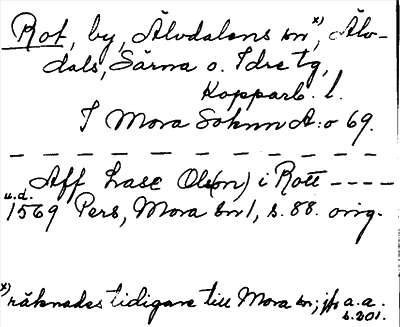 Rot, by, Älvdalens sn x), Älv-
dals, Särna o. Idre tg,
Kopparb. l.
I Mora Soknn A:o 69.
Aff Lasc Ols(on) i Rott ----
u.d.
1569 Pers, Mora bn 1, s. 88. orig.
x) räknades tidigare till Mora sn; jfr a.a.
s. 201.